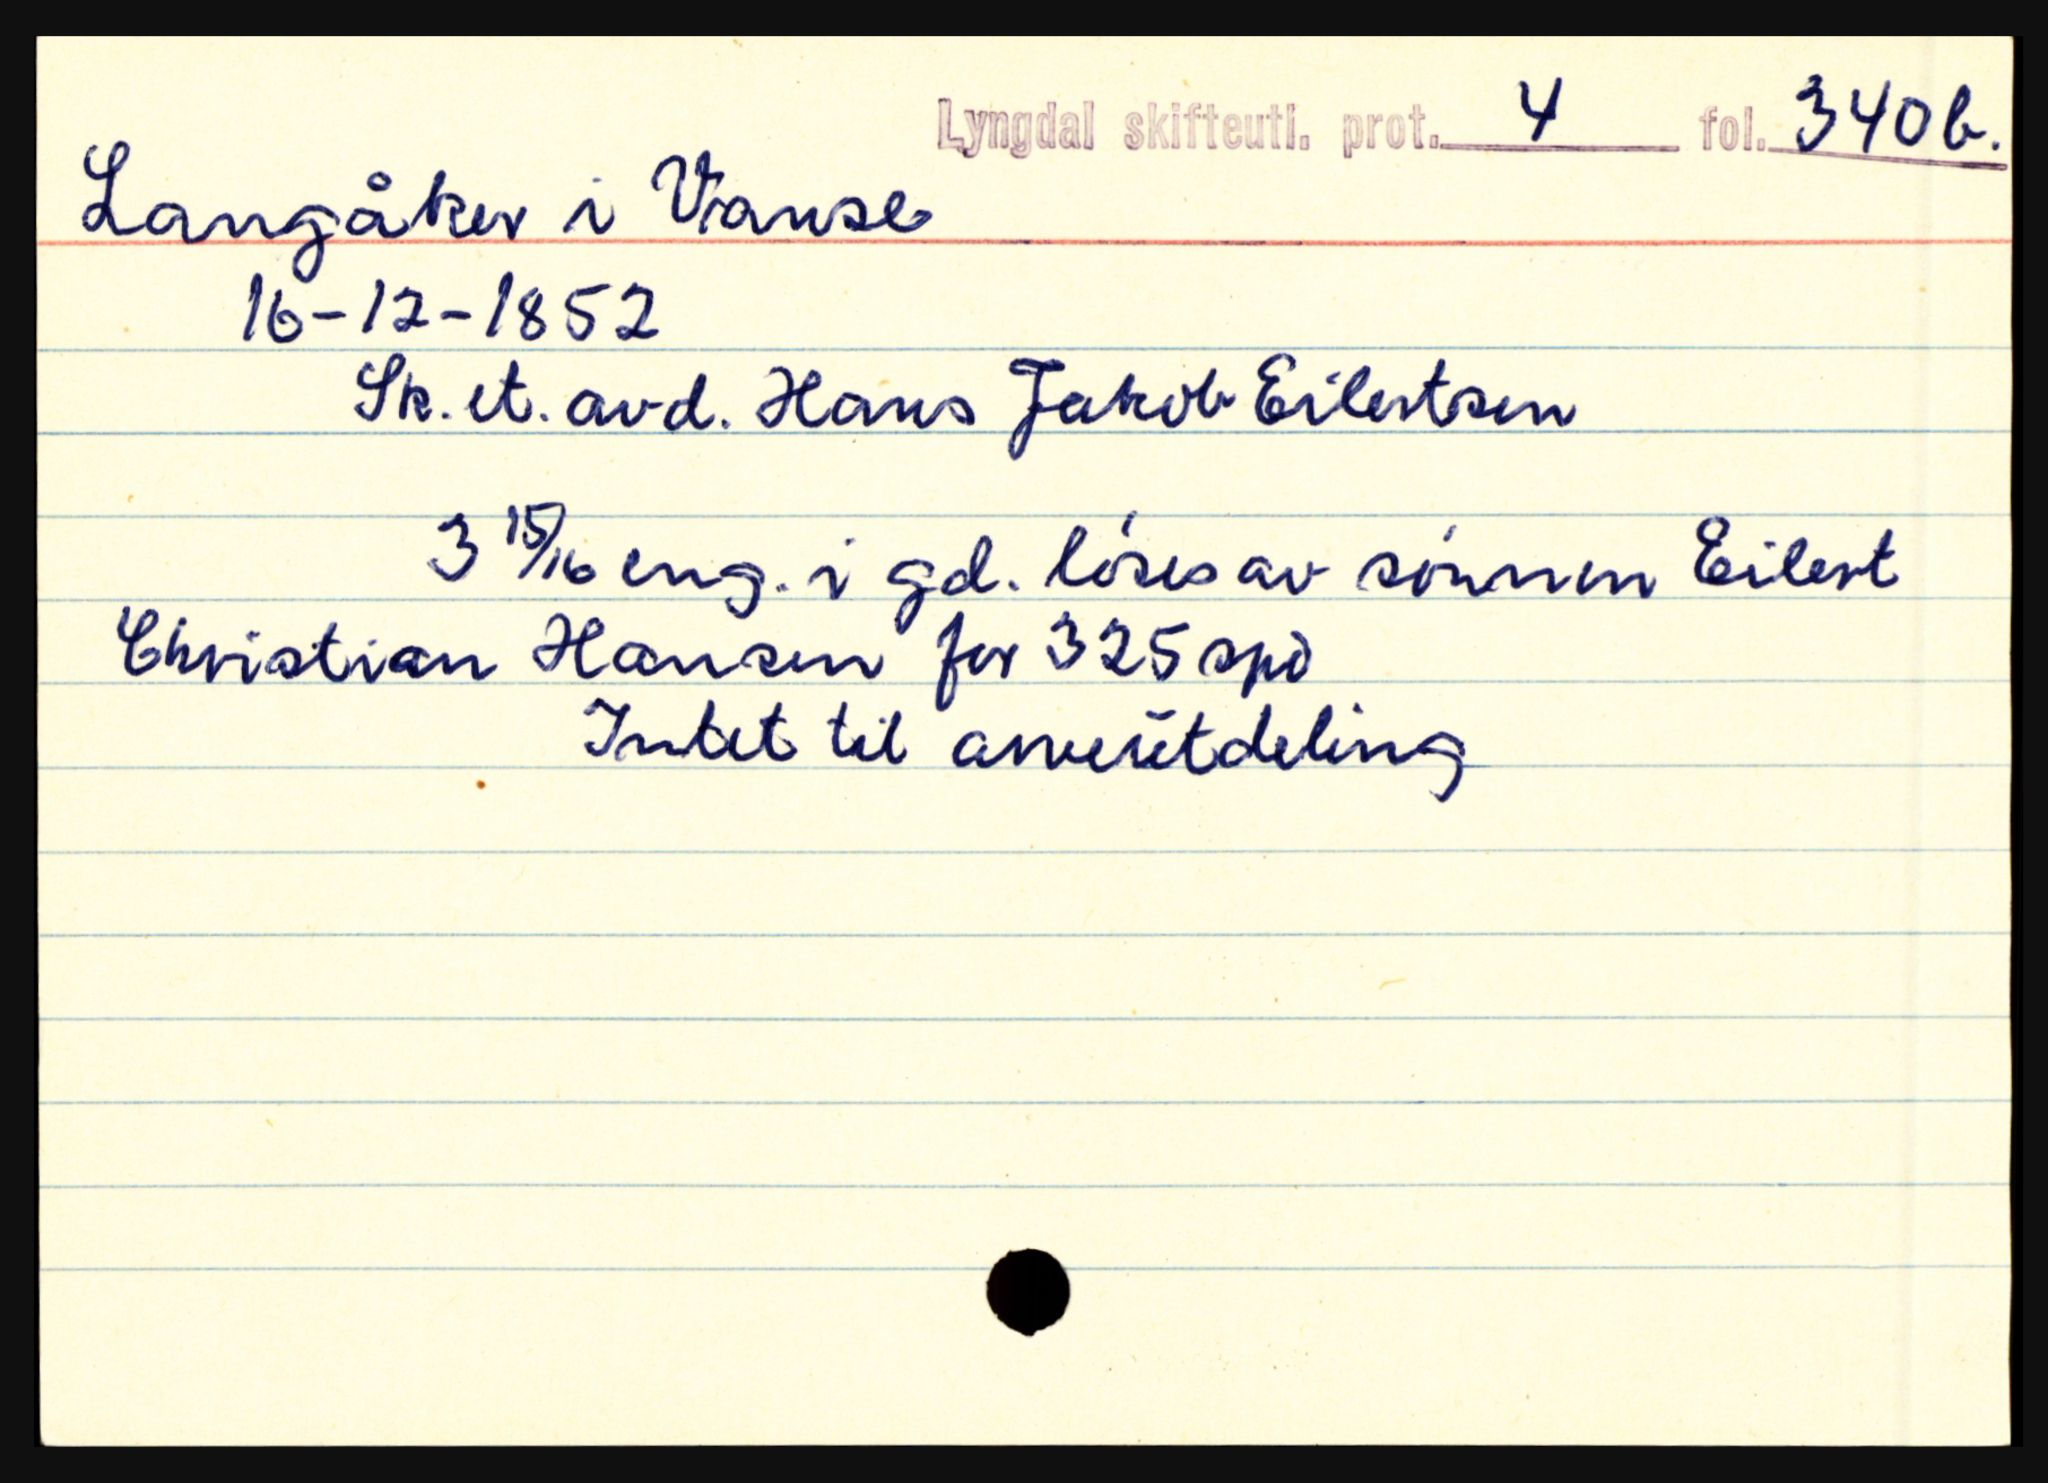 Lyngdal skifteutl. prot. 4 fol. 340b.
Langåker i Vanse
16-12-1852
Sk. et. avd. Hans Jakob Eilertsen
3 15/16 eng. i gd. löses av sönnen Eilert
Christian Hansen for 325 spd
Intet til arveutdeling